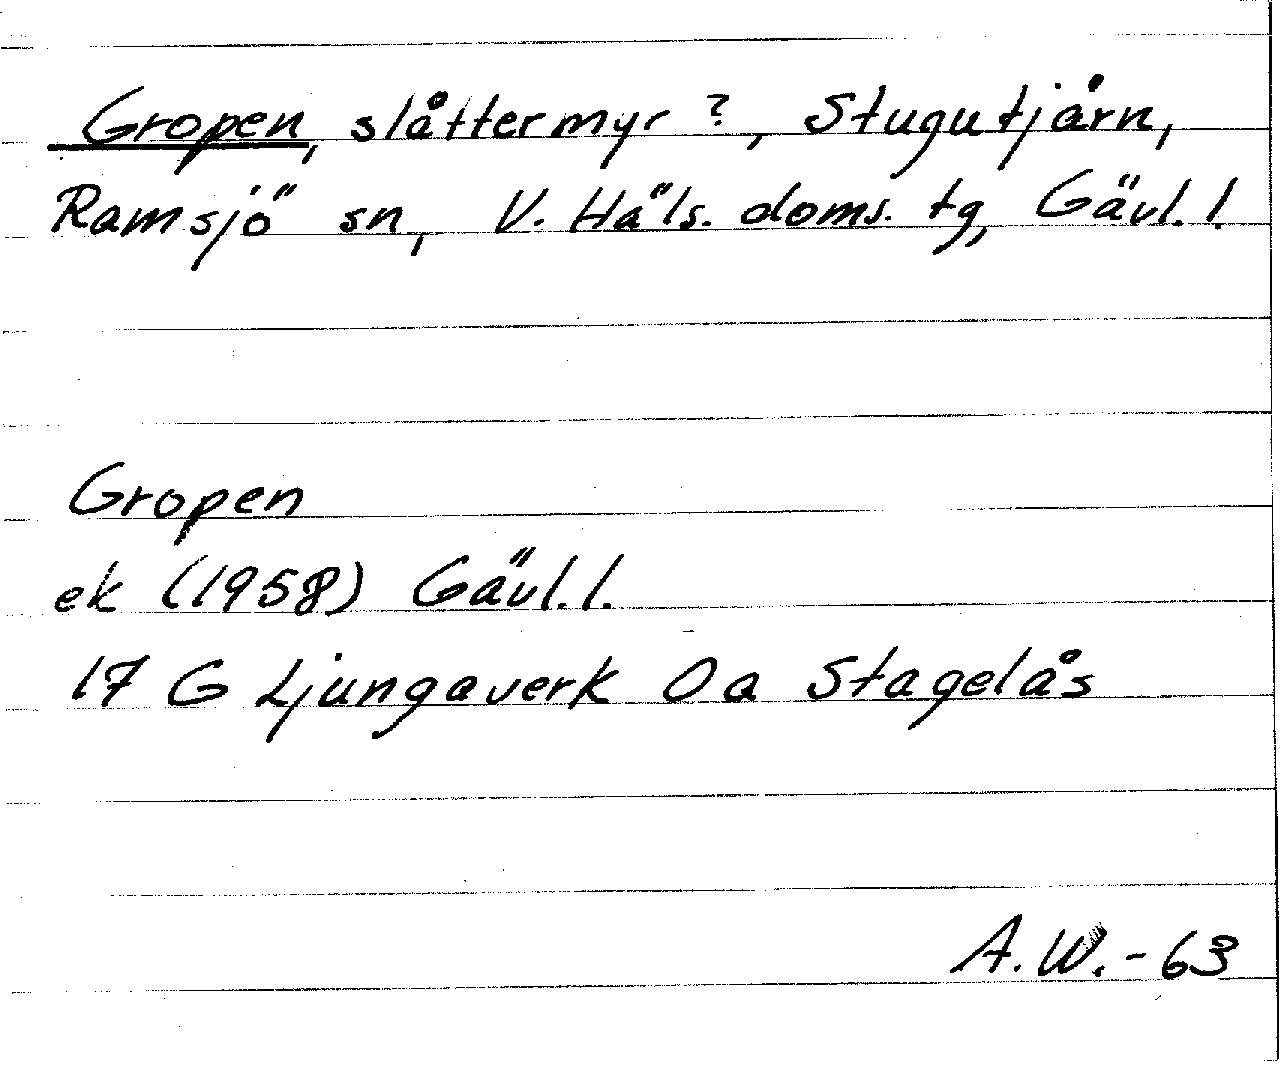 Gropen, slåttermyr ?, Stugutjärn,
Ramsjö sn, V. Häls. doms. tg, Gävl. l.
Gropen
ek (1958) Gävl. l.
17 G Ljungaverk 0 a Stagelås
A. W. - 63